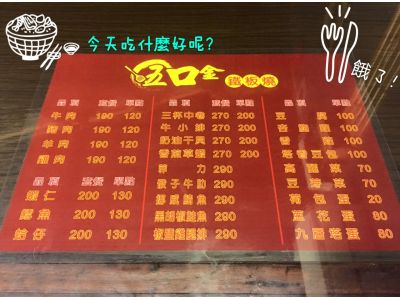 今天吃什麼好呢?
餓了!
五口金 鐵板燒
品項 套餐 單點
牛肉 190 120
豬肉 190 120
羊肉 190 120
雞肉 190 120
品項 套餐 單點
蝦仁 200 130
鱈魚 200 130
蛤仔 200 130
品項 套餐 單點
三杯中卷 270 200
牛小排 270 200
奶油干貝 270 200
香煎草蝦 270 200
菲力 290
骰子牛肋 290
挪威鯖魚 290
黑胡椒 290
椒鹽雞腿排 290
品項 單點
豆腐 100
杏鮑菇 100
香菇 100
塔香豆包 100
高麗菜 70
豆芽菜 70
荷包蛋 20
蔥花蛋 80
九層塔蛋 80